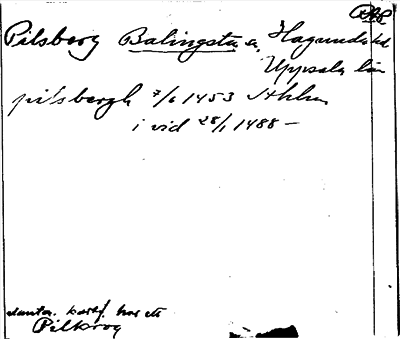 Pilsberg Balingsta s. Hagunda hd
Uppsala län
pilsbergh 7/6 1453 Sthlm
i vid 28/1 1488 —
har ett
Pilkrog